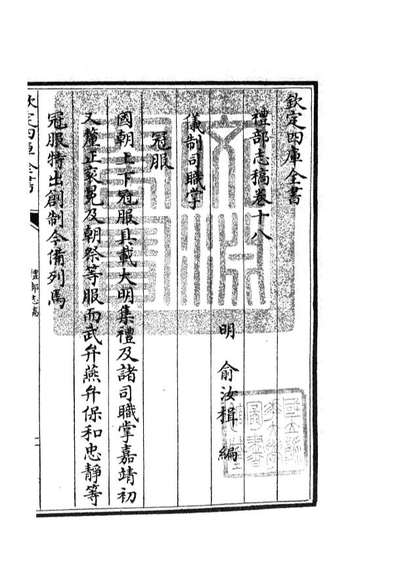 欽定四庫全書
禮部志稿卷十八
明 俞汝楫 編
儀制司職掌
冠服
國朝上下冠服具載大明集禮及諸司職掌嘉靖初
又釐正衮冕及朝祭等服而武弁燕弁保和忠靜等
冠服特出創制今備列焉
欽定四庫全書
禮部志稿